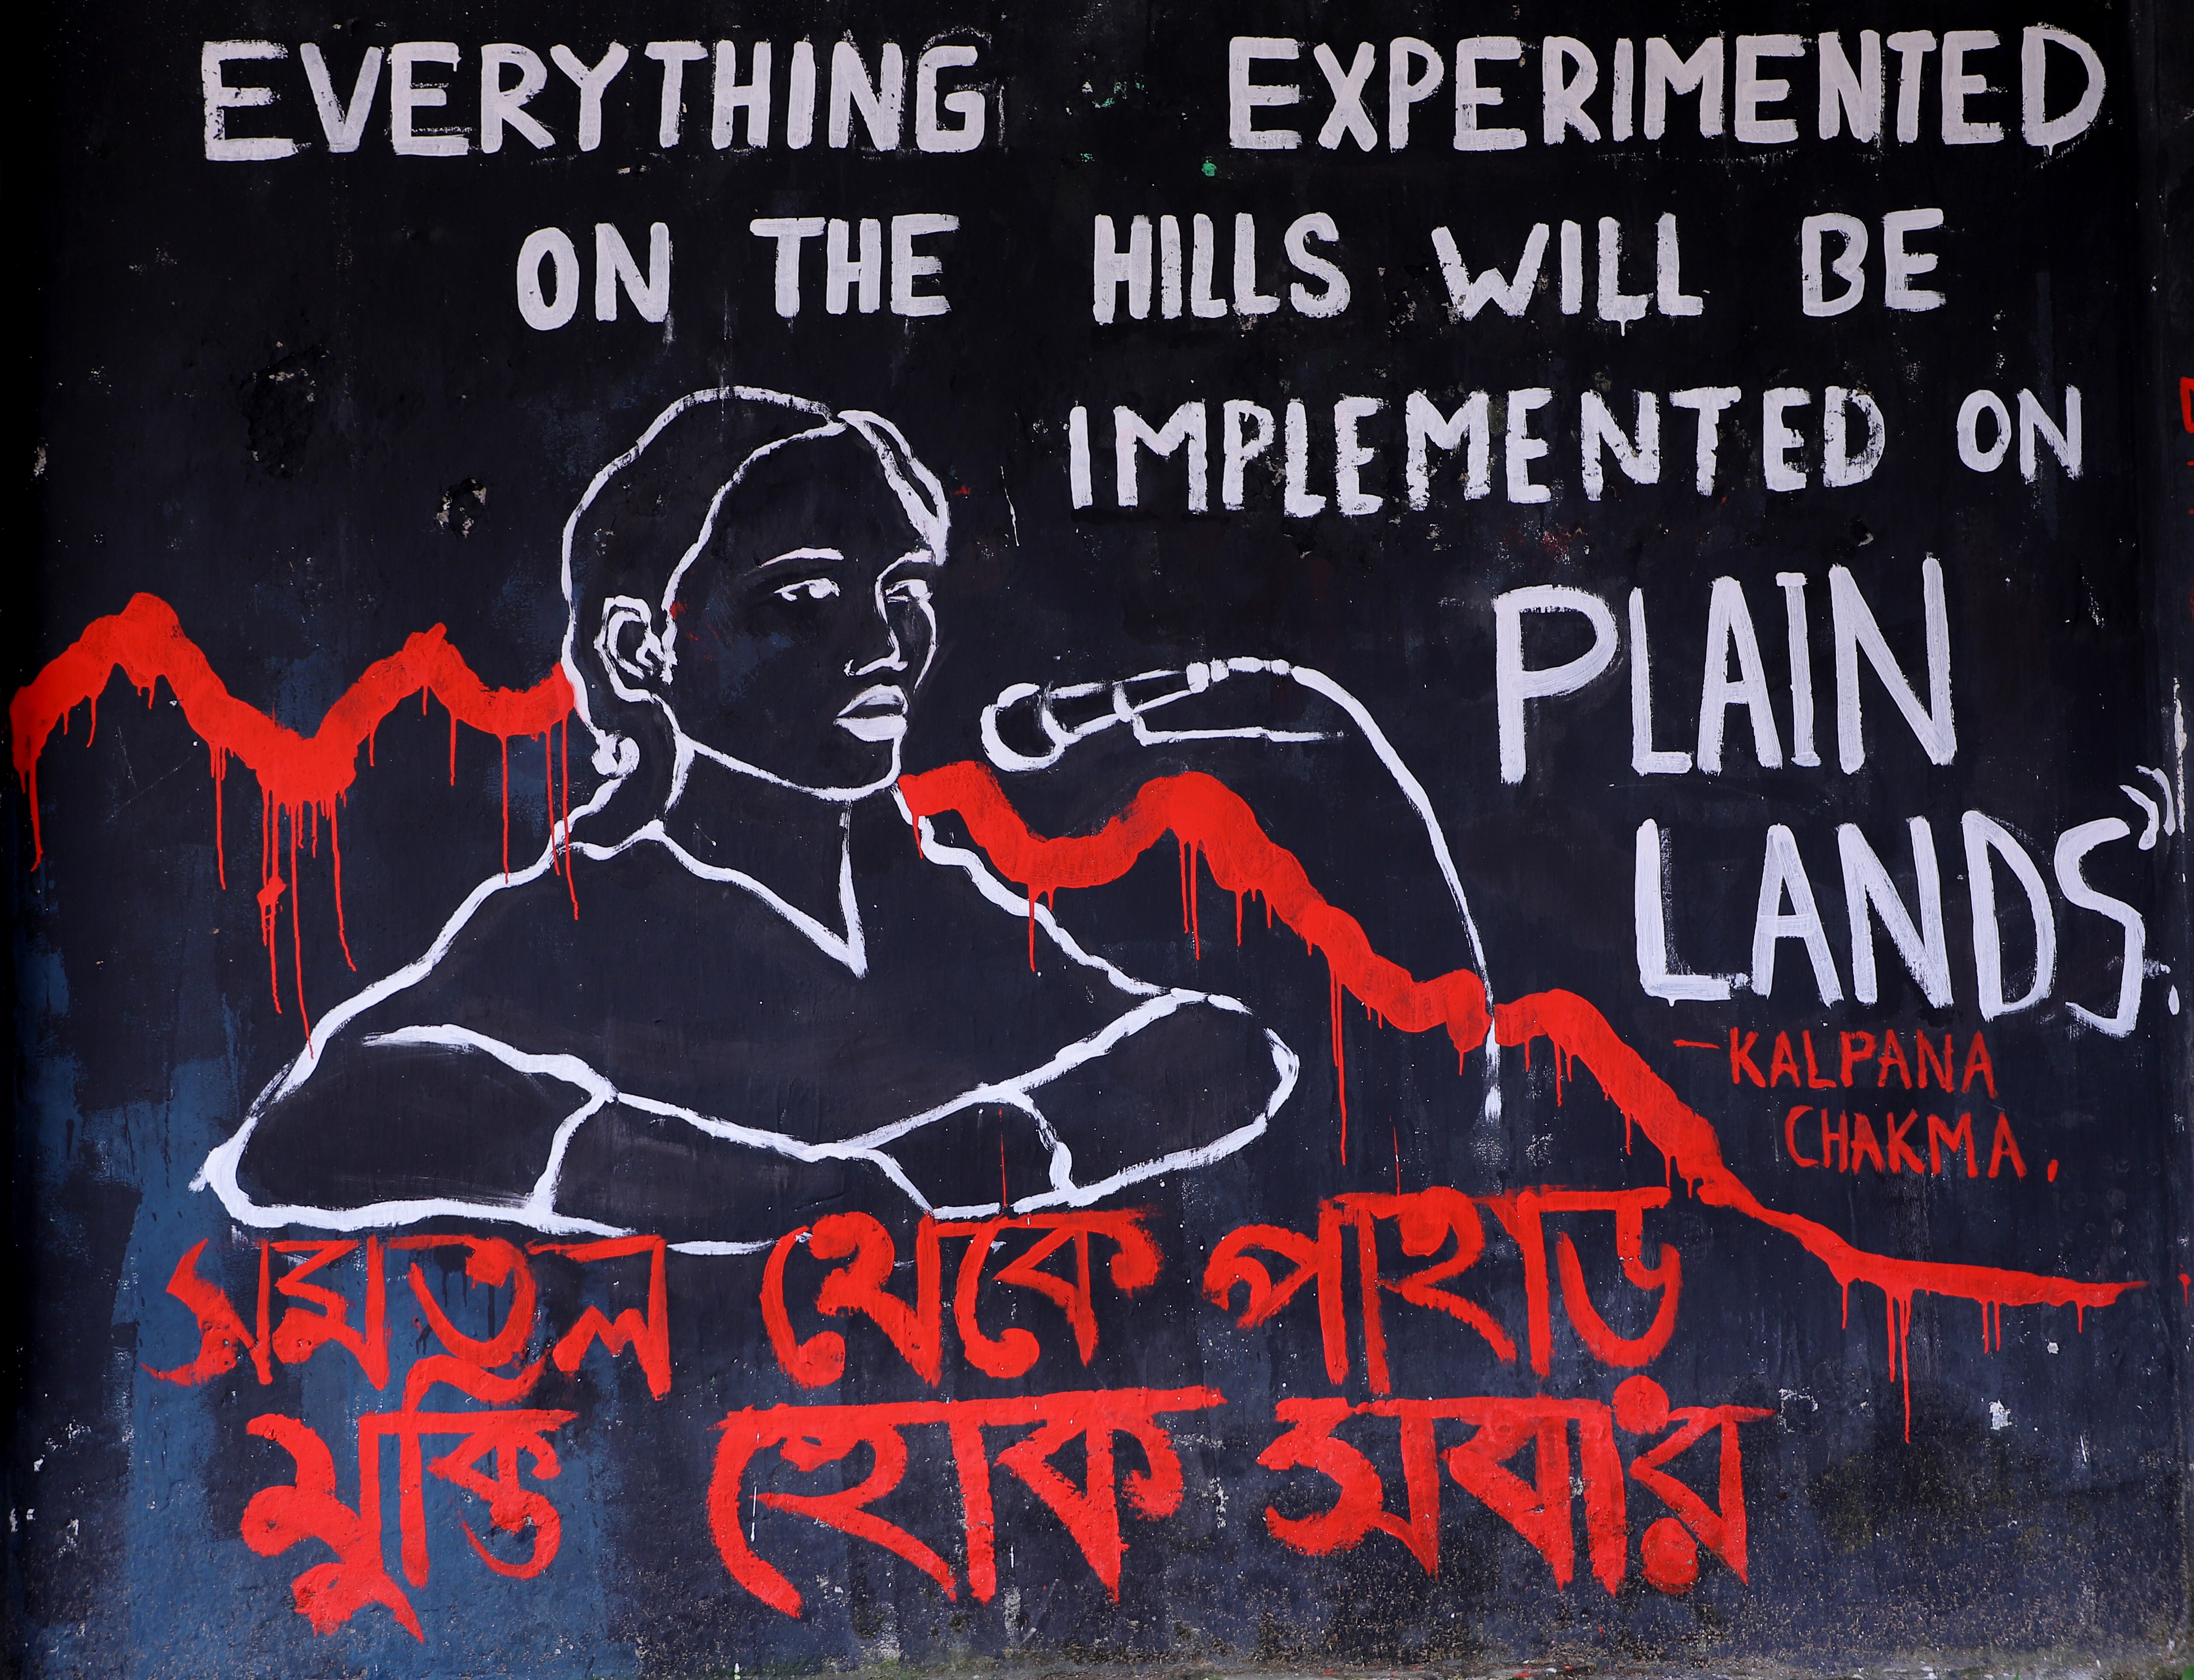 EVERYTHING EXPERIMENTED
ON THE HILLS WILL BE
IMPLEMENTED ON
PLAIN
LANDS."
-KALPANA
CHAKMA.
সমতল থেকে পাহাড়
মুক্তি হোক সবার